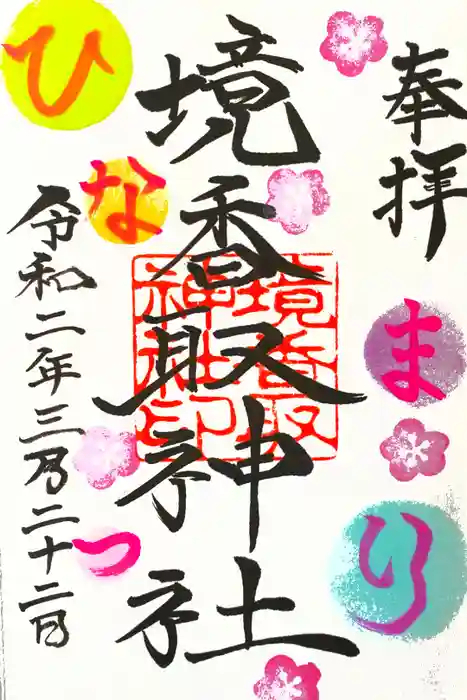 奉拝
境香取神社
境香取神社印
ひなまつり
令和二年三月二十二日